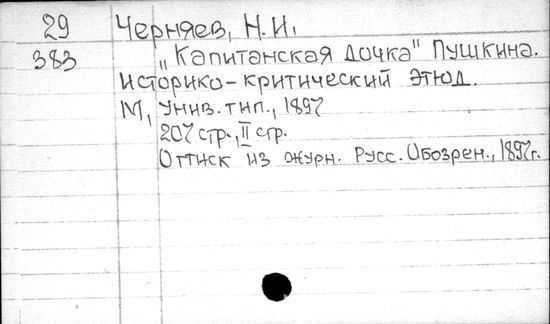 29 Черняев, Н.И.
383 „Капитанская дочка" Пушкина.
Историко-критический этюд.
М, Унив. тип., 1897
207 стр., II стр.
Оттиск из журн. Русс. Обозрен., 1897г.